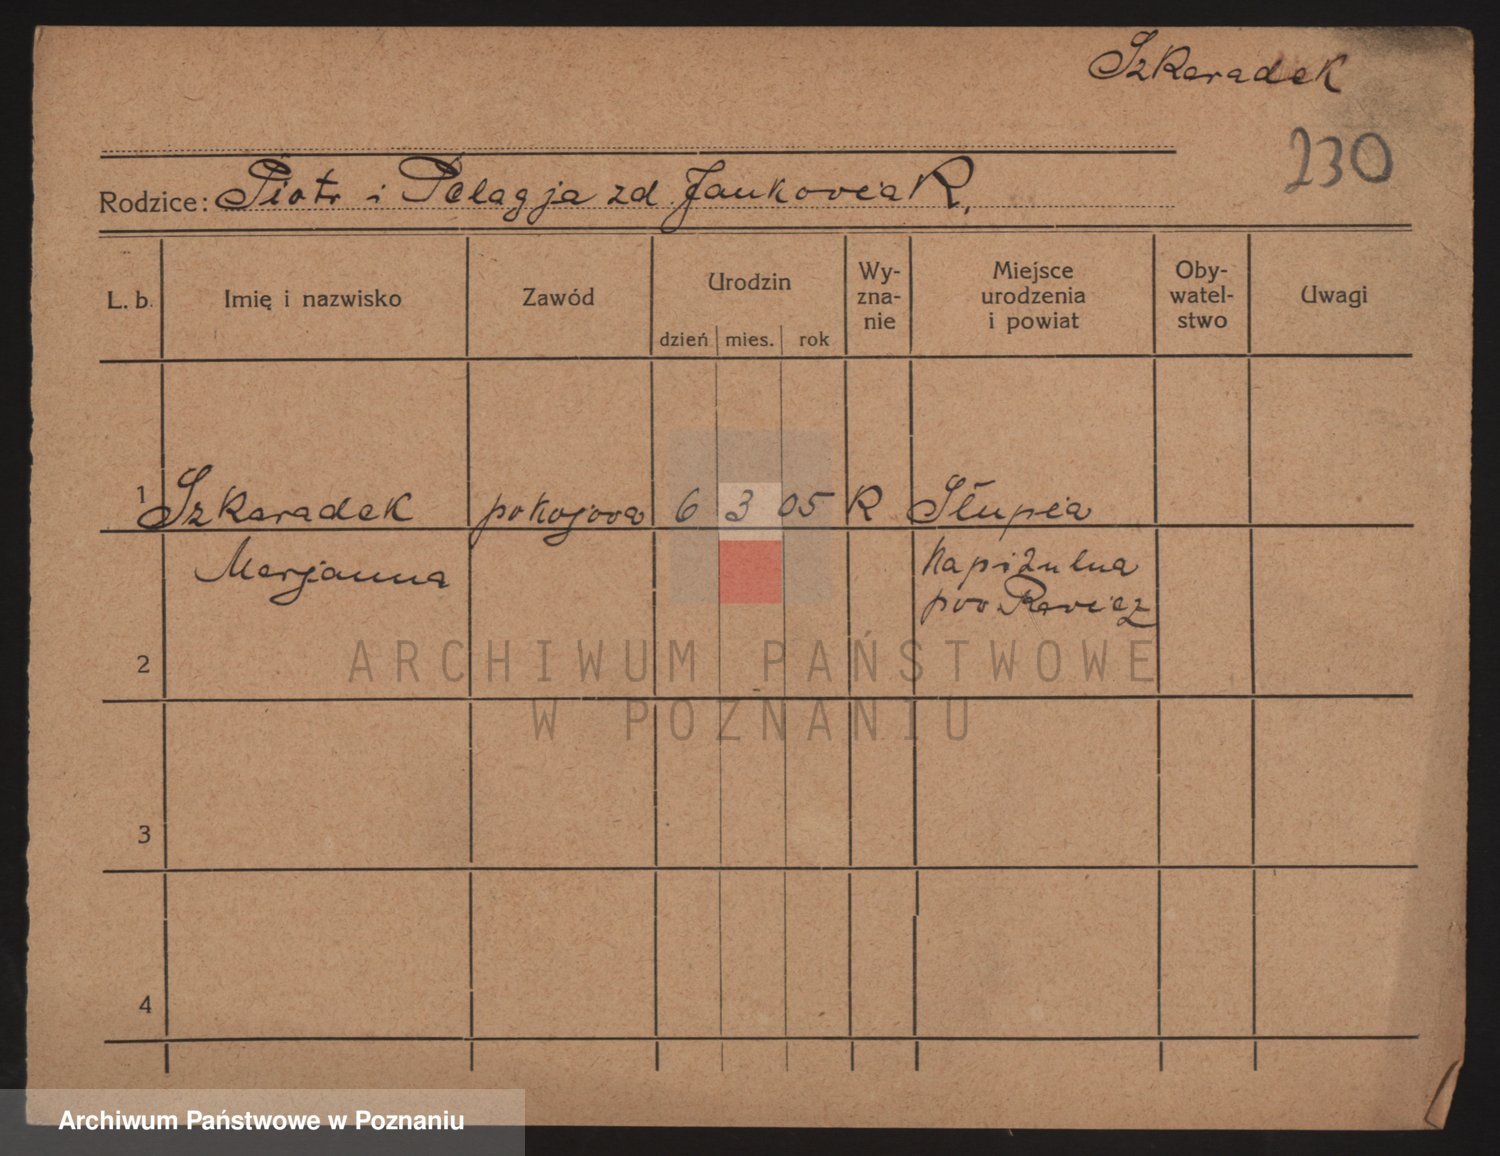 Szkaradek
230
Rodzice: Piotr i Pelagja zd Jankowiak.
L. b. Imię i nazwisko Zawód Urodzin dzień mies. rok Wy-zna-nie Miejsce urodzenia i powiat Oby-watel-stwo Uwagi
1 Szkaradek pokojowa 6 3 05 R Słupia
Marjanna Kapitulna
pow. Rawicz
2
ARCHIWUM PAŃSTWOWE
W POZNANIU
3
4
Archiwum Państwowe w Poznaniu